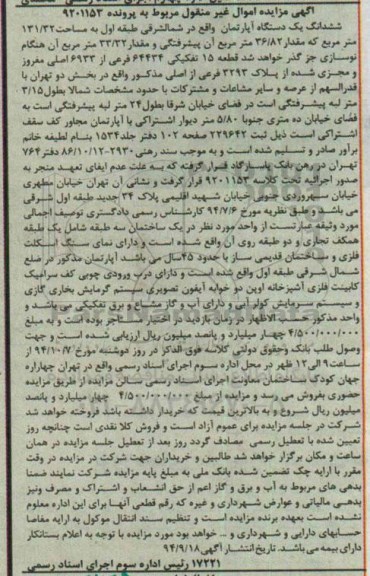 آگهی مزایده اموال غیر منقول مربوط به پرونده ۹۲۰۱۱۵۳
ششدانگ یک دستگاه آپارتمان واقع در شمالشرقی طبقه اول به مساحت ۱۳۱/۳۲
متر مربع که مقدار ۳۶/۸۲ متر مربع آن پیشرفتگی و مقدار ۳۳/۳۲ متر مربع آن هنگام
نوسازی جز گذر خواهد شد قطعه ۱۵ تفکیکی ۶۴۴۳۴ فرعی از ۶۹۳۳ اصلی مفروز
و مجزی شده از پلاک ۳۲۹۳ فرعی از اصلی مذکور واقع در بخش دو تهران با
قدرالسهم از عرصه و سایر مشاعات و مشترکات با حدود مشخصات شمالا بطول ۳/۱۵
متر لبه پیشرفتگی است در فضای خیابان شرقا بطول ۲۴ متر لبه پیشرفتگی است به
فضای خیابان ده متری جنوبا ۵/۸۰ متر دیوار اشتراکی با آپارتمان مجاور کف سقف
اشتراکی است ذیل ثبت ۲۲۹۶۴۲ صفحه ۱۰۲ دفتر جلد ۱۵۳۴ بنام لطیفه خانم
برآور صادر و تسلیم شده است و به موجب سند رهنی ۲۹۳۰-۸۶/۱۰/۱۲ دفتر ۷۶۴
تهران در رهن بانک پاسارگاد قرار گرفته که به علت عدم ایفای تعهد منجر به
صدور اجرائیه تحت کلاسه ۹۲۰۱۱۵۳ قرار گرفت و نشانی آن تهران خیابان مطهری
خیابان سهروردی جنوبی خیابان شهید اقلیمی پلاک ۳۴ جدید طبقه اول شرقی
می باشد و طبق نظریه مورخ ۹۴/۷/۶ کارشناس رسمی دادگستری توصیف اجمالی
مورد وثیقه عبارتست از واحد مورد نظر در یک ساختمان سه طبقه شامل یک طبقه
همکف تجاری و دو طبقه روی آن واقع شده است و دارای نمای سنگ اسکلت
فلزی و ساختمان قدیمی ساز با حدود ۴۵ سال می باشد آپارتمان مذکور در ضلع
شمال شرقی طبقه اول واقع شده است و دارای درب ورودی چوبی کف سرامیک
کابینت فلزی آشپزخانه اوپن دو خوابه آیفون تصویری سیستم گرمایش بخاری گازی
و سیستم سرمایش کولر آبی و دارای آب و گاز مشاع و برق تفکیکی می باشد و
واحد مذکور حسب الاظهار در زمان بازدید در اختیار مستاجر بوده است و به مبلغ
۴/۵۰۰/۰۰۰/۰۰۰ چهار میلیارد و پانصد میلیون ریال ارزیابی شده است و جهت
وصول طلب بانک وحقوق دولتی کلاسه فوق الذکر در روز دوشنبه مورخ ۹۴/۱۰/۷ از
ساعت ۹ الی ۱۲ ظهر در محل اداره سوم اجرای اسناد رسمی واقع در تهران چهارراه
جهان کودک ساختمان معاونت اجرای اسناد رسمی سالن مزایده از طریق مزایده
حضوری بفروش می رسد و مزایده از مبلغ ۴/۵۰۰/۰۰۰/۰۰۰ چهار میلیارد و پانصد
میلیون ریال شروع و به بالاترین قیمت که خریدار داشته باشد فروخته خواهد شد
شرکت در جلسه مزایده برای عموم آزاد است و فروش کلا نقدی است چنانچه روز
تعیین شده با تعطیل رسمی مصادف گردد روز بعد از تعطیل جلسه مزایده در همان
ساعت و مکان برگزار خواهد شد طالبین و خریداران جهت شرکت در مزایده در وقت
مقرر با ارایه چک تضمین شده بانک ملی به مبلغ پایه مزایده شرکت نمایند ضمنا
بدهی های مربوط به آب و برق و گاز اعم از حق انشعاب و اشتراک و مصرف ونیز
بدهی مالیاتی و عوارض شهرداری و غیره که رقم قطعی آنها برای این اداره معلوم
نشده است بعهده برنده مزایده است و تنظیم سند انتقال موکول به ارایه مفاصا
حسابهای دارایی و شهرداری و ... خواهد بود مورد مزایده با توجه به اعلام بستانکار
دارای بیمه می باشد. تاریخ انتشار آگهی ۹۴/۹/۱۸
۱۷۲۲۱ رئیس اداره سوم اجرای اسناد رسمی